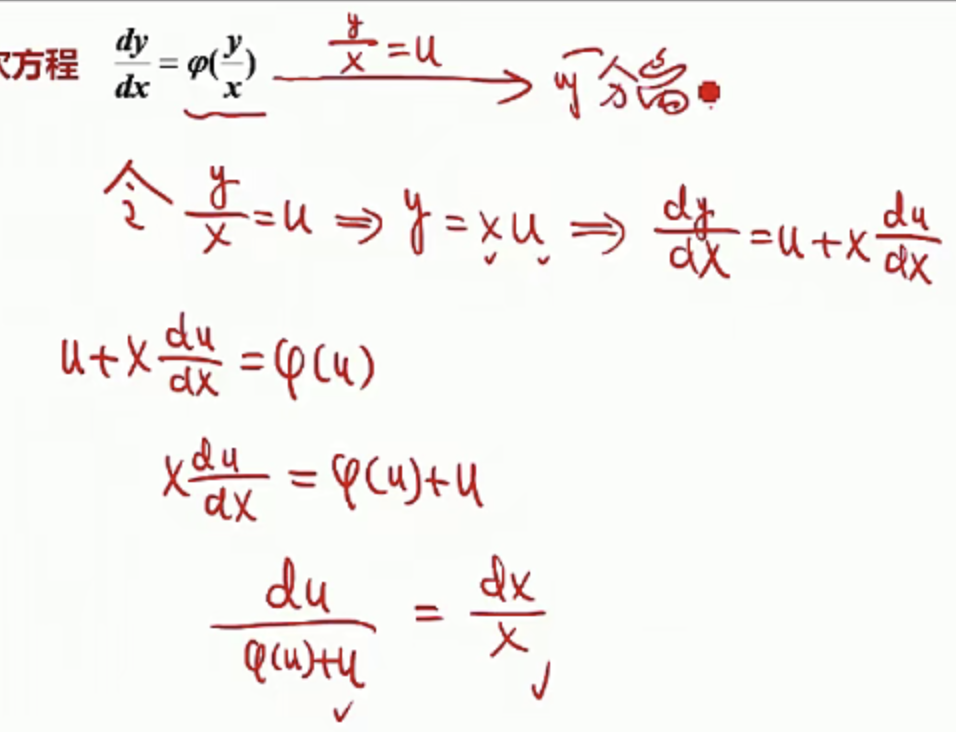 次方程 dy/dx = φ(y/x) y/x = u → 可分离
令 y/x = u ⇒ y = xu ⇒ dy/dx = u + x du/dx
u + x du/dx = φ(u)
x du/dx = φ(u) + u
du/(φ(u)+u) = dx/x